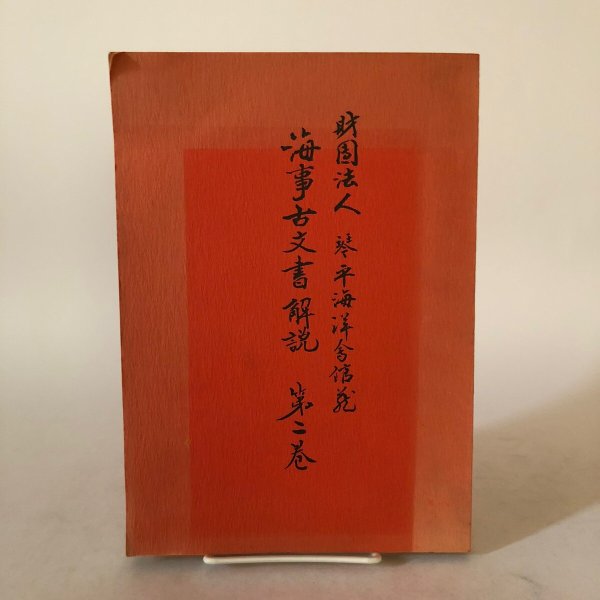 財團法人 琴平海洋会館蔵
海事古文書解説 第二巻